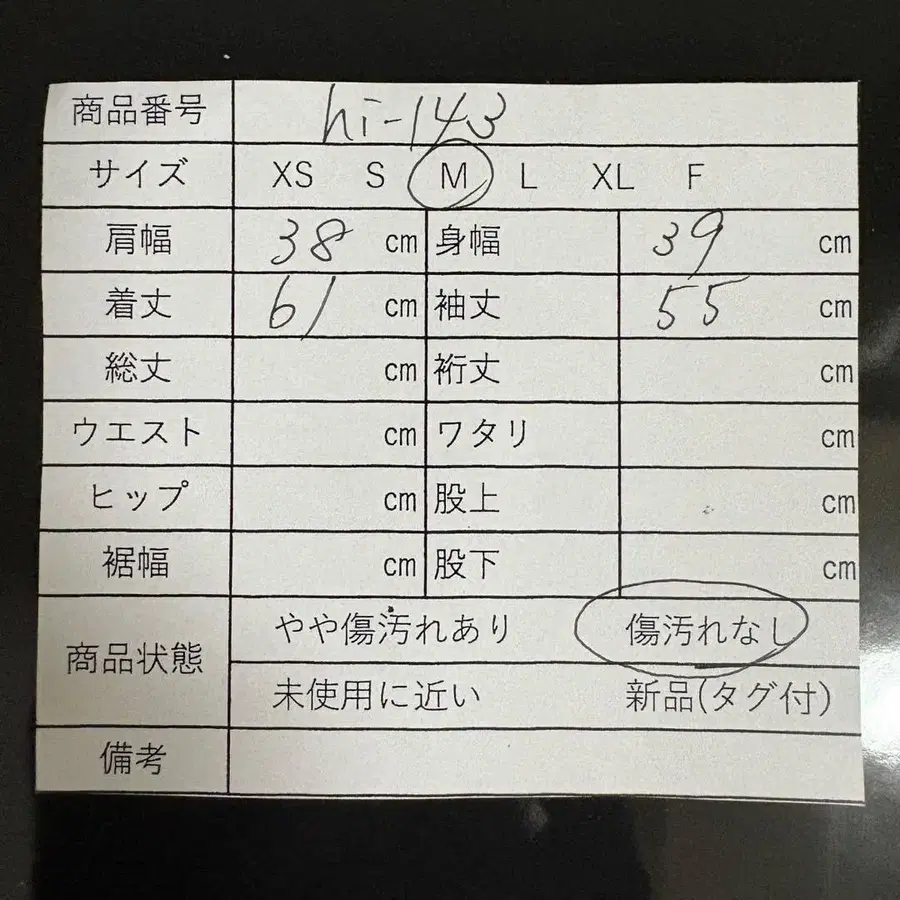 商品番号 hi-143
サイズ XS S M L XL F
肩幅 38 cm 身幅 39 cm
着丈 61 cm 袖丈 55 cm
総丈 cm 裄丈 cm
ウエスト cm ワタリ cm
ヒップ cm 股上 cm
裾幅 cm 股下 cm
商品状態 やや傷汚れあり 傷汚れなし
未使用に近い 新品(タグ付)
備考